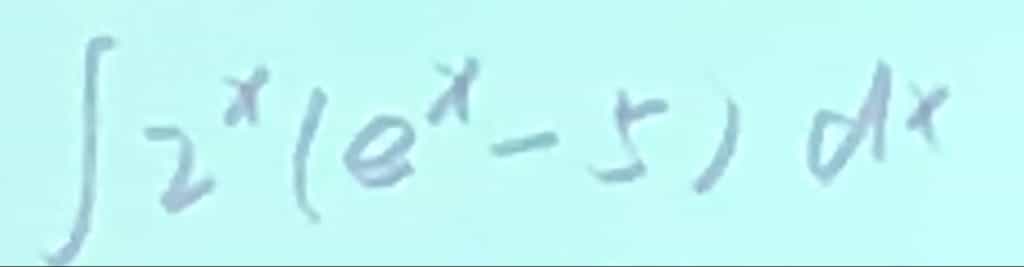 ∫ 2^x (e^x - 5) dx